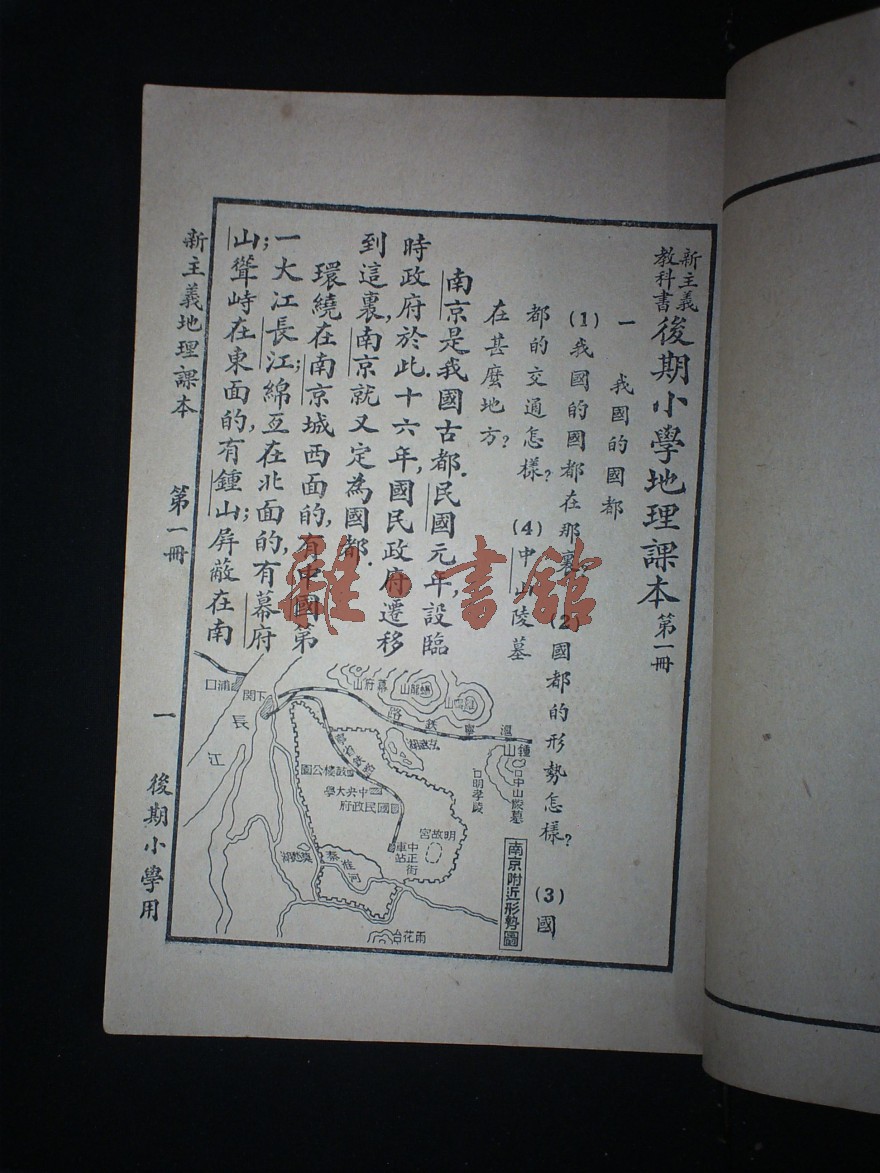 新主義
教科書
後期小學地理課本 第一冊
一 我國的國都
(1)我國的國都在那裏?(2)國都的形勢怎樣?(3)國
都的交通怎樣?(4)中山陵墓
在甚麼地方?
南京是我國古都.民國元年,設臨
時政府於此.十六年,國民政府遷移
到這裏,南京就又定為國都.
環繞在南京城西面的,有中國第
一大江長江;綿亙在北面的,有幕府
山;聳峙在東面的,有鍾山;屏蔽在南
新主義地理課本 第一冊 一 後期小學用
雜·書館
口浦
關下
長江
山府幕
山龍蟠
滬寧鐵路
鍾山
中山陵墓
明孝陵
湖武玄
園公樓鼓
學大央中
府政民國
宮故明
中正街
車站
秦淮河
湖愁莫
台花雨
南京附近形勢圖